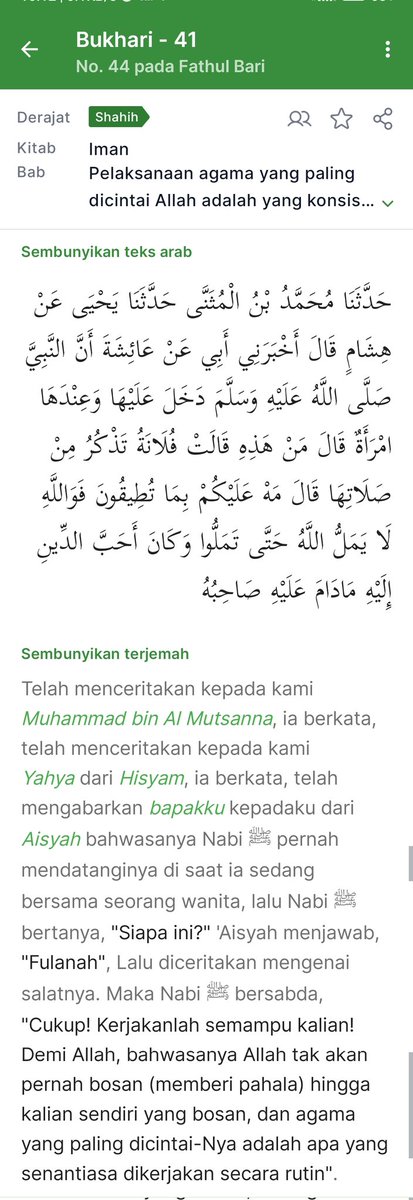 Bukhari - 41
No. 44 pada Fathul Bari
Derajat Shahih
Kitab Iman
Bab Pelaksanaan agama yang paling
dicintai Allah adalah yang konsis...
Sembunyikan teks arab
حَدَّثَنَا مُحَمَّدُ بْنُ الْمُثَنَّى حَدَّثَنَا يَحْيَى عَنْ
هِشَامٍ قَالَ أَخْبَرَنِي أَبِي عَنْ عَائِشَةَ أَنَّ النَّبِيَّ
صَلَّى اللَّهُ عَلَيْهِ وَسَلَّمَ دَخَلَ عَلَيْهَا وَعِنْدَهَا
امْرَأَةٌ قَالَ مَنْ هَذِهِ قَالَتْ فُلَانَةُ تَذْكُرُ مِنْ
صَلَاتِهَا قَالَ مَهْ عَلَيْكُمْ بِمَا تُطِيقُونَ فَوَاللَّهِ
لَا يَمَلُّ اللَّهُ حَتَّى تَمَلُّوا وَكَانَ أَحَبَّ الدِّينِ
إِلَيْهِ مَادَامَ عَلَيْهِ صَاحِبُهُ
Sembunyikan terjemah
Telah menceritakan kepada kami
Muhammad bin Al Mutsanna, ia berkata,
telah menceritakan kepada kami
Yahya dari Hisyam, ia berkata, telah
mengabarkan bapakku kepadaku dari
Aisyah bahwasanya Nabi ﷺ pernah
mendatanginya di saat ia sedang
bersama seorang wanita, lalu Nabi ﷺ
bertanya, "Siapa ini?" 'Aisyah menjawab,
"Fulanah", Lalu diceritakan mengenai
salatnya. Maka Nabi ﷺ bersabda,
"Cukup! Kerjakanlah semampu kalian!
Demi Allah, bahwasanya Allah tak akan
pernah bosan (memberi pahala) hingga
kalian sendiri yang bosan, dan agama
yang paling dicintai-Nya adalah apa yang
senantiasa dikerjakan secara rutin".